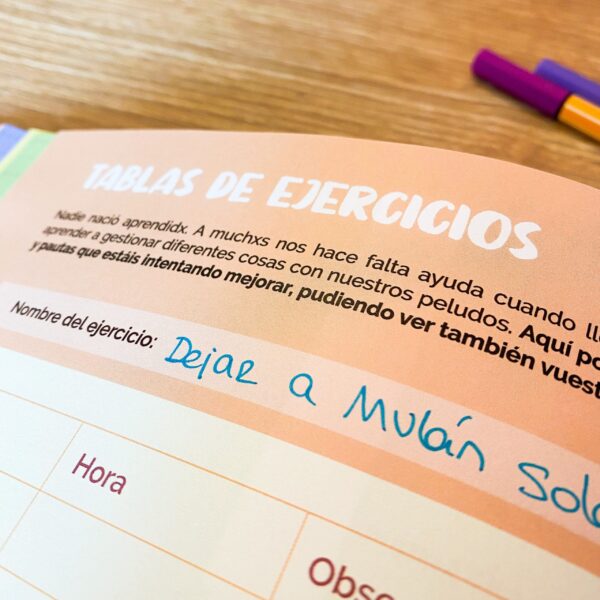 TABLAS DE EJERCICIOS
Nadie nació aprendidx. A muchxs nos hace falta ayuda cuando
aprender a gestionar diferentes cosas con nuestros peludos. Aquí
y pautas que estáis intentando mejorar, pudiendo ver también
Nombre del ejercicio: Dejar a Mulán
Hora